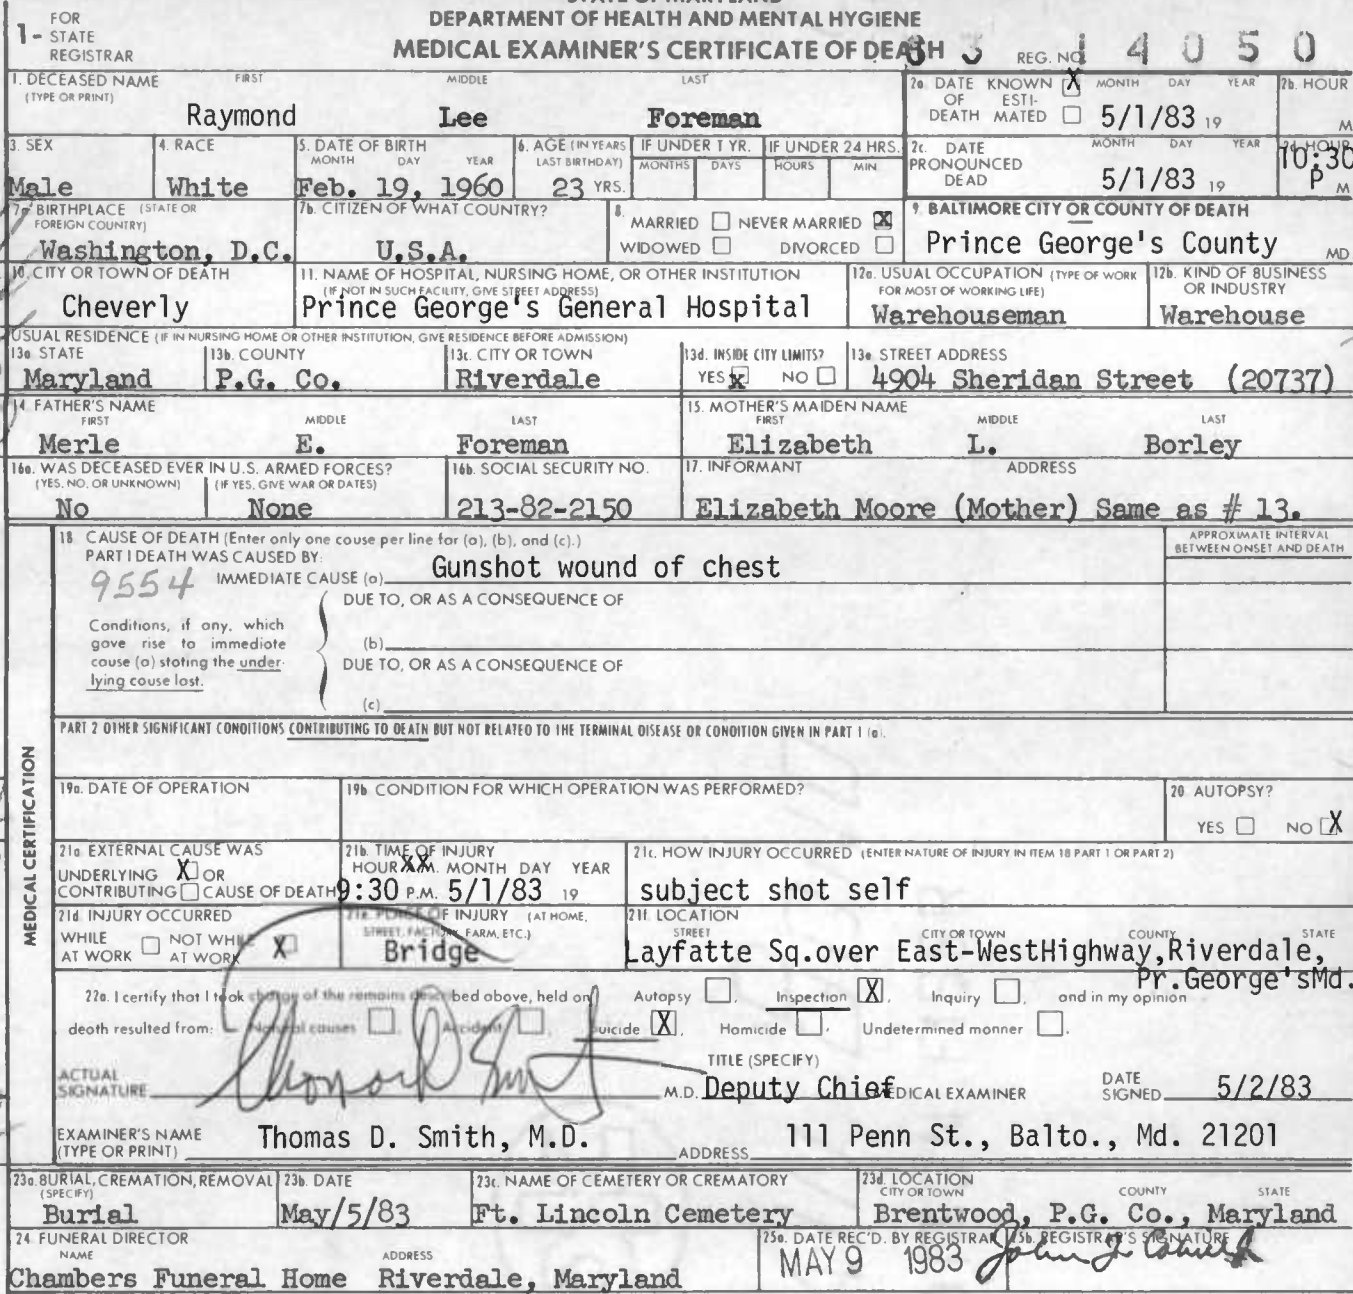 STATE OF MARYLAND
FOR STATE REGISTRAR
1-
DEPARTMENT OF HEALTH AND MENTAL HYGIENE
MEDICAL EXAMINER'S CERTIFICATE OF DEATH 83 REG. NO. 14050
1. DECEASED NAME (TYPE OR PRINT) FIRST MIDDLE LAST
Raymond Lee Foreman
2a. DATE OF DEATH KNOWN X ESTIMATED MONTH DAY YEAR 5/1/83 19
2b. HOUR M
3. SEX Male
4. RACE White
5. DATE OF BIRTH MONTH DAY YEAR Feb. 19, 1960
6. AGE (IN YEARS LAST BIRTHDAY) 23 YRS.
IF UNDER 1 YR. MONTHS DAYS
IF UNDER 24 HRS. HOURS MIN
2c. DATE PRONOUNCED DEAD MONTH DAY YEAR 5/1/83 19
2d. HOUR 10:30 P M
7a. BIRTHPLACE (STATE OR FOREIGN COUNTRY) Washington, D.C.
7b. CITIZEN OF WHAT COUNTRY? U.S.A.
8. MARRIED NEVER MARRIED X
WIDOWED DIVORCED
9. BALTIMORE CITY OR COUNTY OF DEATH
Prince George's County MD
10. CITY OR TOWN OF DEATH Cheverly
11. NAME OF HOSPITAL, NURSING HOME, OR OTHER INSTITUTION
(IF NOT IN SUCH FACILITY, GIVE STREET ADDRESS)
Prince George's General Hospital
12a. USUAL OCCUPATION (TYPE OF WORK FOR MOST OF WORKING LIFE) Warehouseman
12b. KIND OF BUSINESS OR INDUSTRY Warehouse
USUAL RESIDENCE (IF IN NURSING HOME OR OTHER INSTITUTION, GIVE RESIDENCE BEFORE ADMISSION)
13a STATE Maryland
13b. COUNTY P.G. Co.
13c. CITY OR TOWN Riverdale
13d. INSIDE CITY LIMITS? YES X NO
13e STREET ADDRESS 4904 Sheridan Street (20737)
14. FATHER'S NAME FIRST MIDDLE LAST
Merle E. Foreman
15. MOTHER'S MAIDEN NAME FIRST MIDDLE LAST
Elizabeth L. Borley
16a. WAS DECEASED EVER IN U.S. ARMED FORCES?
(YES, NO, OR UNKNOWN) No
(IF YES, GIVE WAR OR DATES) None
16b. SOCIAL SECURITY NO. 213-82-2150
17. INFORMANT ADDRESS
Elizabeth Moore (Mother) Same as # 13.
MEDICAL CERTIFICATION
18 CAUSE OF DEATH (Enter only one cause per line for (a), (b), and (c).)
PART I DEATH WAS CAUSED BY:
9554 IMMEDIATE CAUSE (a) Gunshot wound of chest
APPROXIMATE INTERVAL BETWEEN ONSET AND DEATH
DUE TO, OR AS A CONSEQUENCE OF
Conditions, if any, which gave rise to immediate cause (a) stating the underlying cause last.
(b)
DUE TO, OR AS A CONSEQUENCE OF
(c)
PART 2 OTHER SIGNIFICANT CONDITIONS CONTRIBUTING TO DEATH BUT NOT RELATED TO THE TERMINAL DISEASE OR CONDITION GIVEN IN PART 1 (a).
19a. DATE OF OPERATION
19b CONDITION FOR WHICH OPERATION WAS PERFORMED?
20. AUTOPSY?
YES NO X
21a EXTERNAL CAUSE WAS
UNDERLYING X OR
CONTRIBUTING CAUSE OF DEATH
21b. TIME OF INJURY
HOUR XX M. MONTH DAY YEAR
9:30 P.M. 5/1/83 19
21c. HOW INJURY OCCURRED (ENTER NATURE OF INJURY IN ITEM 18 PART 1 OR PART 2)
subject shot self
21d INJURY OCCURRED
WHILE AT WORK NOT WHILE AT WORK X
21e. PLACE OF INJURY (AT HOME, STREET, FACTORY, FARM, ETC.)
Bridge
21f. LOCATION
STREET CITY OR TOWN COUNTY STATE
Layfatte Sq.over East-WestHighway,Riverdale,
Pr.George'sMd.
22a. I certify that I took charge of the remains described above, held on Autopsy , Inspection X , Inquiry , and in my opinion
death resulted from: Natural causes , Accident , Suicide X , Homicide , Undetermined manner .
ACTUAL SIGNATURE Thomas D Smith M.D.
TITLE (SPECIFY)
Deputy Chief MEDICAL EXAMINER
DATE SIGNED 5/2/83
EXAMINER'S NAME (TYPE OR PRINT) Thomas D. Smith, M.D.
ADDRESS 111 Penn St., Balto., Md. 21201
23a. BURIAL, CREMATION, REMOVAL (SPECIFY) Burial
23b. DATE May/5/83
23c. NAME OF CEMETERY OR CREMATORY Ft. Lincoln Cemetery
23d. LOCATION CITY OR TOWN COUNTY STATE
Brentwood, P.G. Co., Maryland
24. FUNERAL DIRECTOR
NAME ADDRESS
Chambers Funeral Home Riverdale, Maryland
25a. DATE REC'D. BY REGISTRAR MAY 9 1983
25b. REGISTRAR'S SIGNATURE John J.